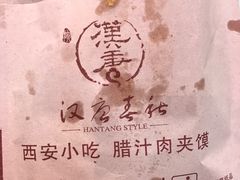 漢唐
汉唐春秋
HANTANG STYLE
西安小吃 腊汁肉夹馍